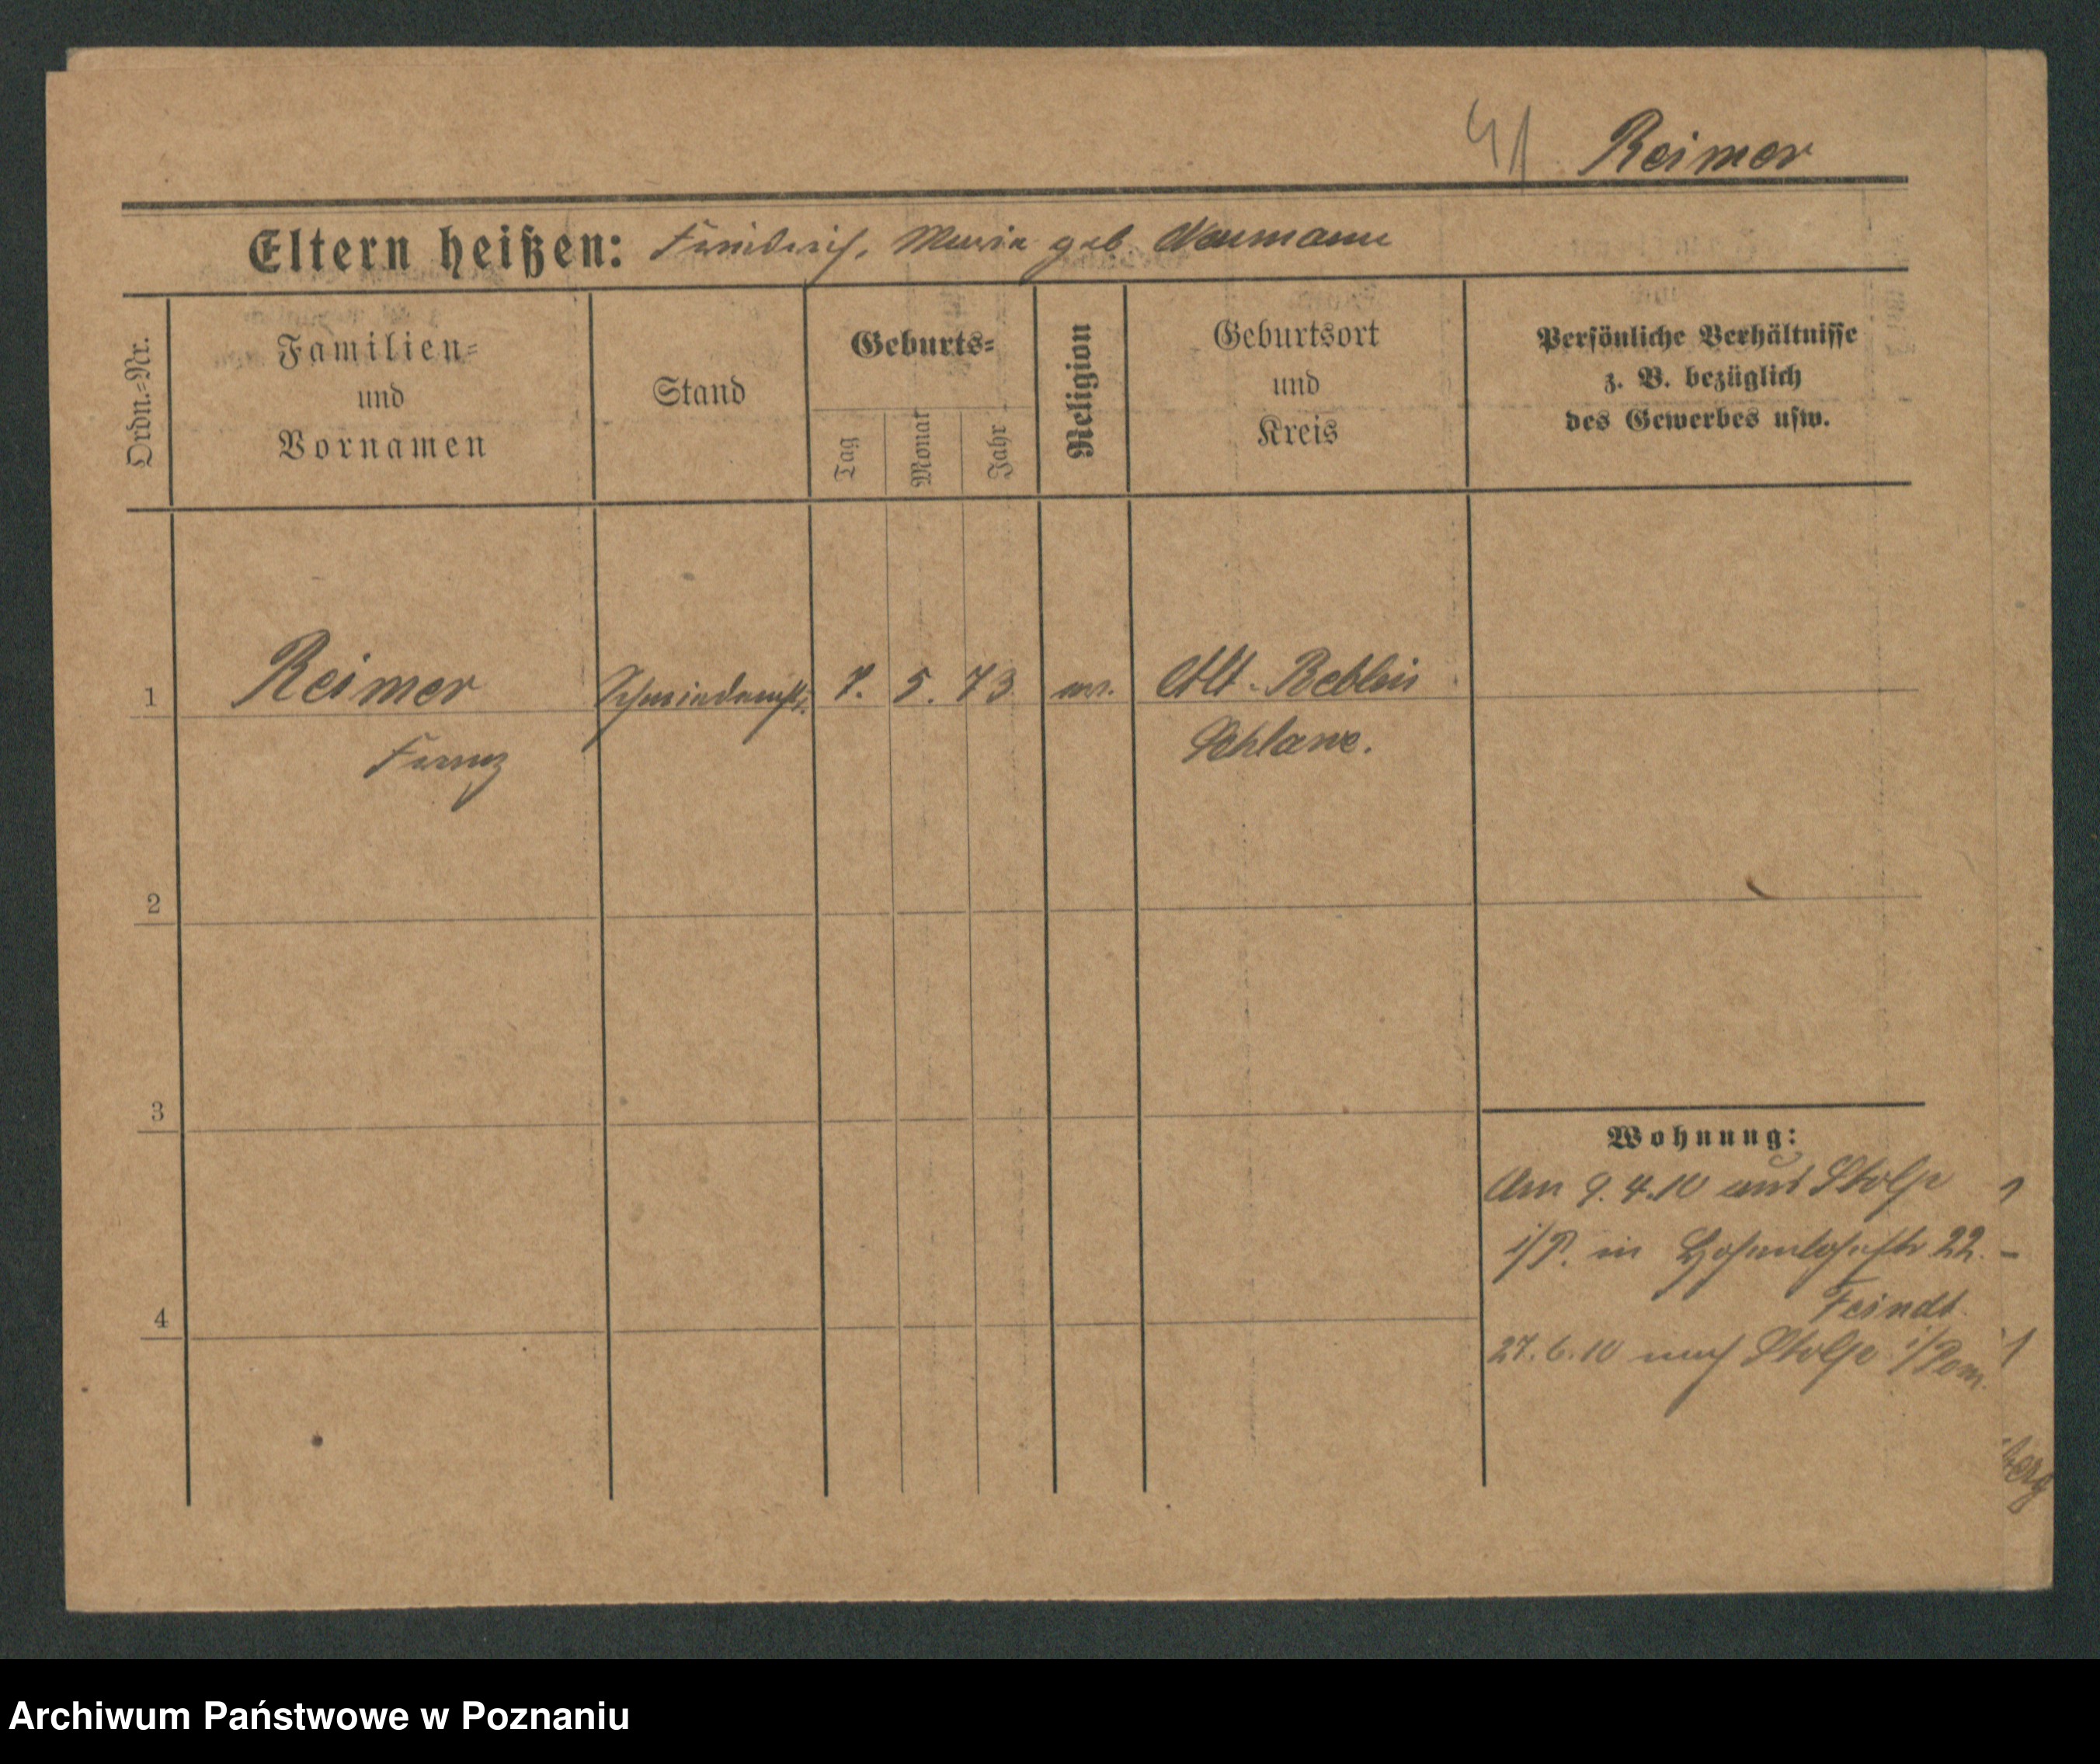 41 Reimer
Eltern heißen: Friedrich, Maria geb. Neumann
Ordn.-Nr.
Familien-
und
Vornamen
Stand
Geburts-
Tag
Monat
Jahr
Religion
Geburtsort
und
Kreis
Persönliche Verhältnisse
z. B. bezüglich
des Gewerbes usw.
1 Reimer 7. 5. 73 Alt-Reblin
Franz Schlawe.
2
3
4
Wohnung:
Am 9.4.10 aus Stolp
i/P. in Hohenlohestr 22.
Feindt
27.6.10 nach Stolp i/Pom.
berg
Archiwum Państwowe w Poznaniu